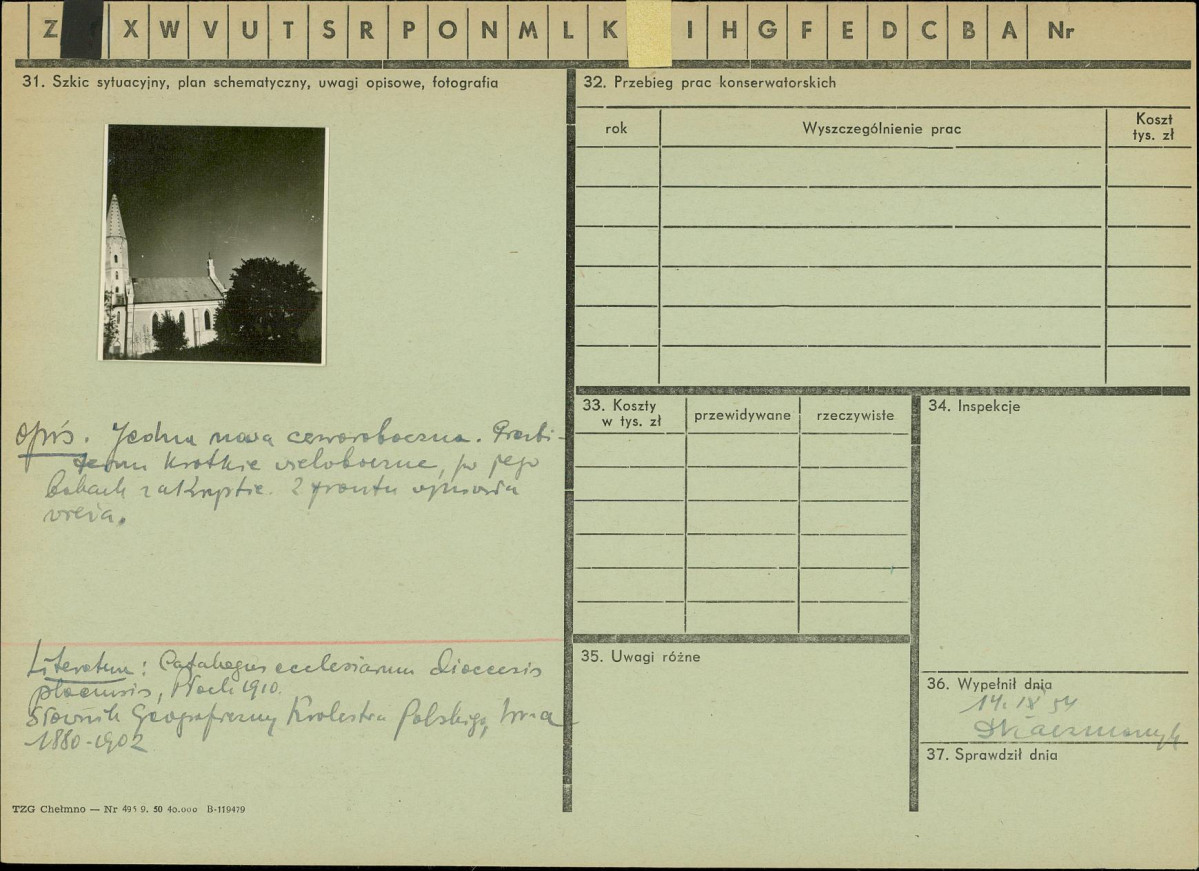 Z X W V U T S R P O N M L K I H G F E D C B A Nr
31. Szkic sytuacyjny, plan schematyczny, uwagi opisowe, fotografia
opis. Jedna nawa czworoboczna. Prezbi-
terium krótkie wieloboczne, po jego
bokach zakrystie. Z frontu wysoka
wieża.
Literatura: Catalogus ecclesiarum Dioecesis
plocensis, 1910.
Słownik Geograficzny Królestwa Polskiego,
1880-1902
TZG Chełmno — Nr 495 9. 50 40.000 B-119479
32. Przebieg prac konserwatorskich
rok Wyszczególnienie prac Koszt
tys. zł
33. Koszty
w tys. zł przewidywane rzeczywiste
34. Inspekcje
35. Uwagi różne
36. Wypełnił dnia
14. IX 54
37. Sprawdził dnia